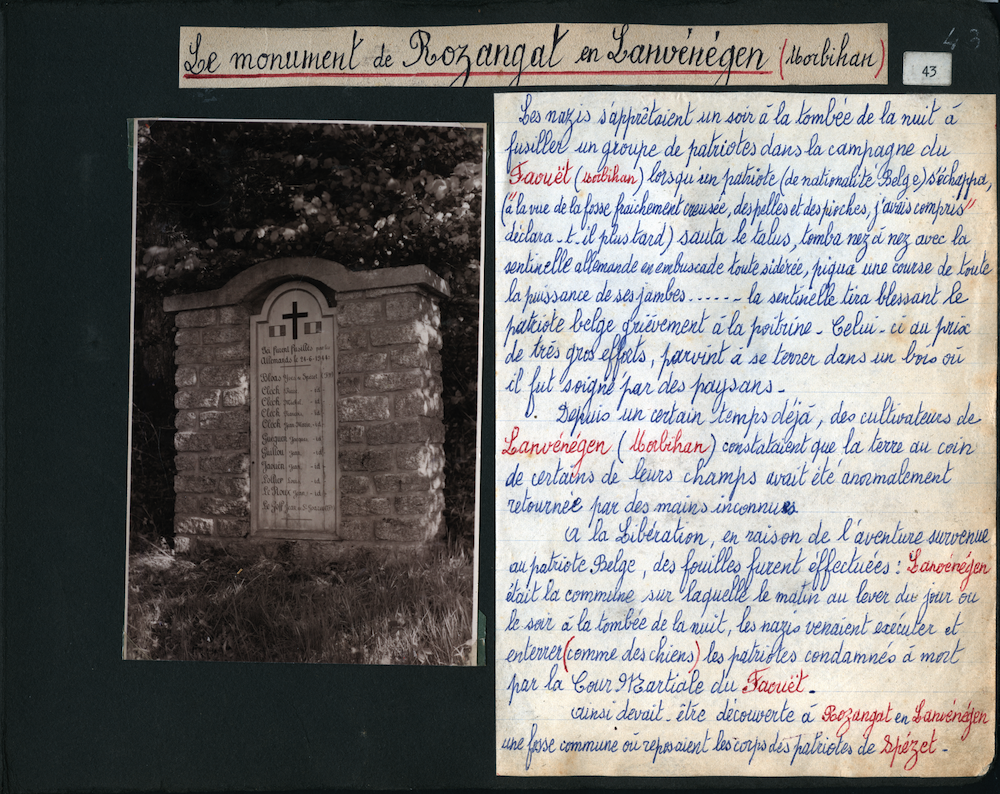 Le monument de Rozangat en Lanvénégen (Morbihan)
43
43
Les nazis s'apprêtaient un soir à la tombée de la nuit à
fusiller un groupe de patriotes dans la campagne du
Faouët (Morbihan) lorsqu'un patriote (de nationalité Belge) s'échappa,
("à la vue de la fosse fraîchement creusée, des pelles et des pioches, j'avais compris"
déclara-t-il plus tard) sauta le talus, tomba nez à nez avec la
sentinelle allemande en embuscade toute sidérée, piqua une course de toute
la puissance de ses jambes...... la sentinelle tira blessant le
patriote belge grièvement à la poitrine - Celui-ci au prix
de très gros efforts, parvint à se terrer dans un bois où
il fut soigné par des paysans -
Depuis un certain temps déjà, des cultivateurs de
Lanvénégen (Morbihan) constataient que la terre au coin
de certains de leurs champs avait été anormalement
retournée par des mains inconnues
A la Libération, en raison de l'aventure survenue
au patriote Belge, des fouilles furent éffectuées : Lanvénégen
était la commune sur laquelle le matin au lever du jour ou
le soir à la tombée de la nuit, les nazis venaient exécuter et
enterrer (comme des chiens) les patriotes condamnés à mort
par la Cour Martiale du Faouët -
Ainsi devait-être découverte à Rozangat en Lanvénégen
une fosse commune où reposaient les corps des patriotes de Spézet -
Ici furent fusillés par les
Allemands le
Cloch
Cloch
Cloch
Cloch Jean
Guillou Jean
Jaouen
Lollier
Le Roux Jean
Le Goff